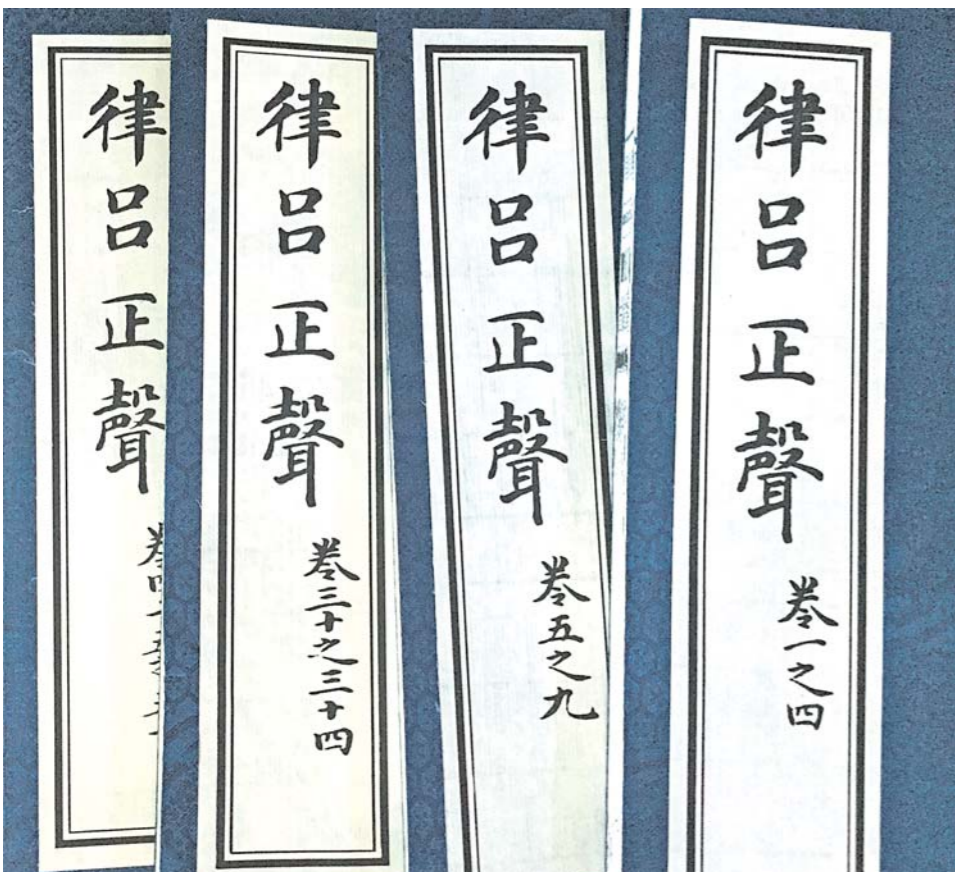 律呂正聲
卷一之四
律呂正聲
卷五之九
律呂正聲
卷三十之三十四
律呂正聲